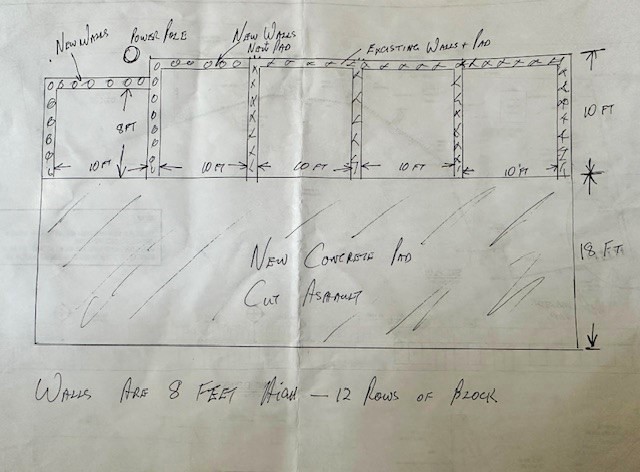 NEW WALLS
POWER POLE
NEW WALLS
NEW PAD
EXISTING WALLS + PAD
8 FT
10 FT
10 FT
10 FT
10 FT
10 FT
10 FT
18 FT.
NEW CONCRETE PAD
CUT ASAULT
WALLS ARE 8 FEET HIGH — 12 ROWS OF BLOCK